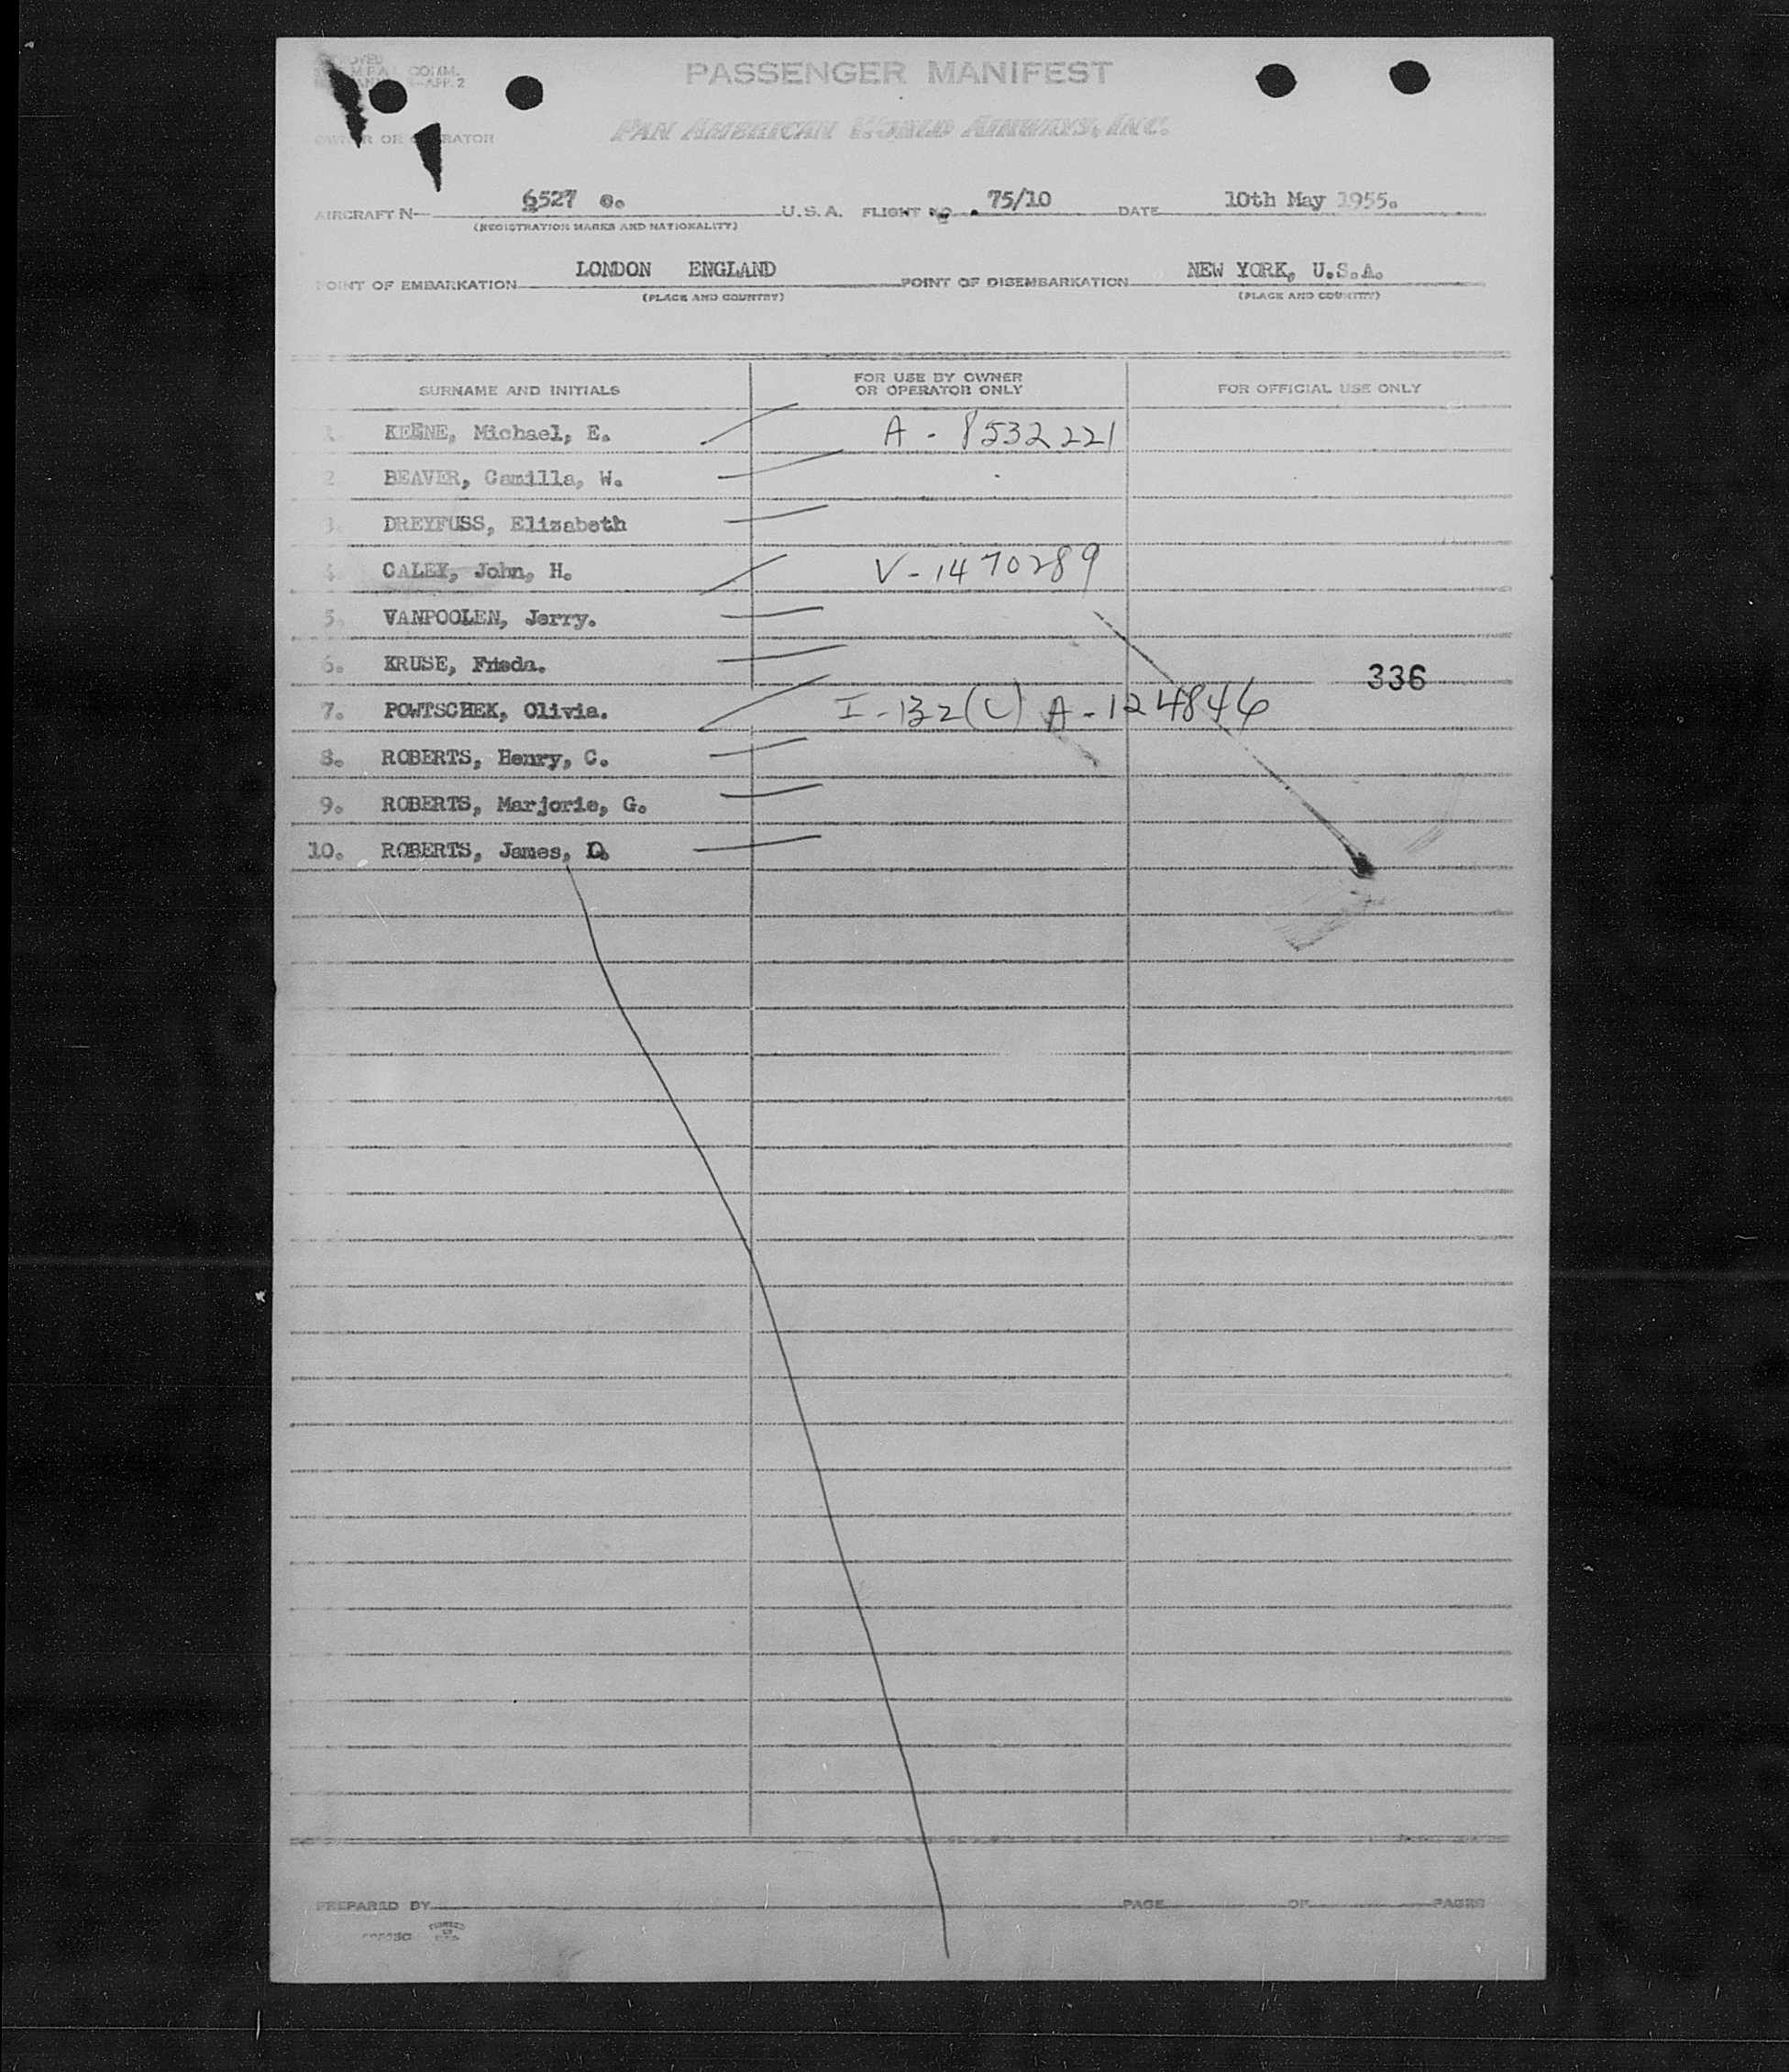 COMM.
APP. 2
PASSENGER MANIFEST
OWNER OR OPERATOR
PAN AMERICAN WORLD AIRWAYS, INC.
AIRCRAFT N 6527 c. U.S.A. FLIGHT NO. 75/10 DATE 10th May 1955.
(REGISTRATION MARKS AND NATIONALITY)
POINT OF EMBARKATION LONDON ENGLAND POINT OF DISEMBARKATION NEW YORK, U.S.A.
(PLACE AND COUNTRY) (PLACE AND COUNTRY)
SURNAME AND INITIALS FOR USE BY OWNER OR OPERATOR ONLY FOR OFFICIAL USE ONLY
1. KEENE, Michael, E. A-8532221
2. BEAVER, Camilla, W.
3. DREYFUSS, Elizabeth
4. CALEK, John, H. V-1470289
5. VANPOOLEN, Jerry.
6. KRUSE, Frieda. 336
7. POWTSCHEK, Olivia. I-132(C) A-124846
8. ROBERTS, Henry, C.
9. ROBERTS, Marjorie, G.
10. ROBERTS, James, D.
PREPARED BY PAGE OF PAGES